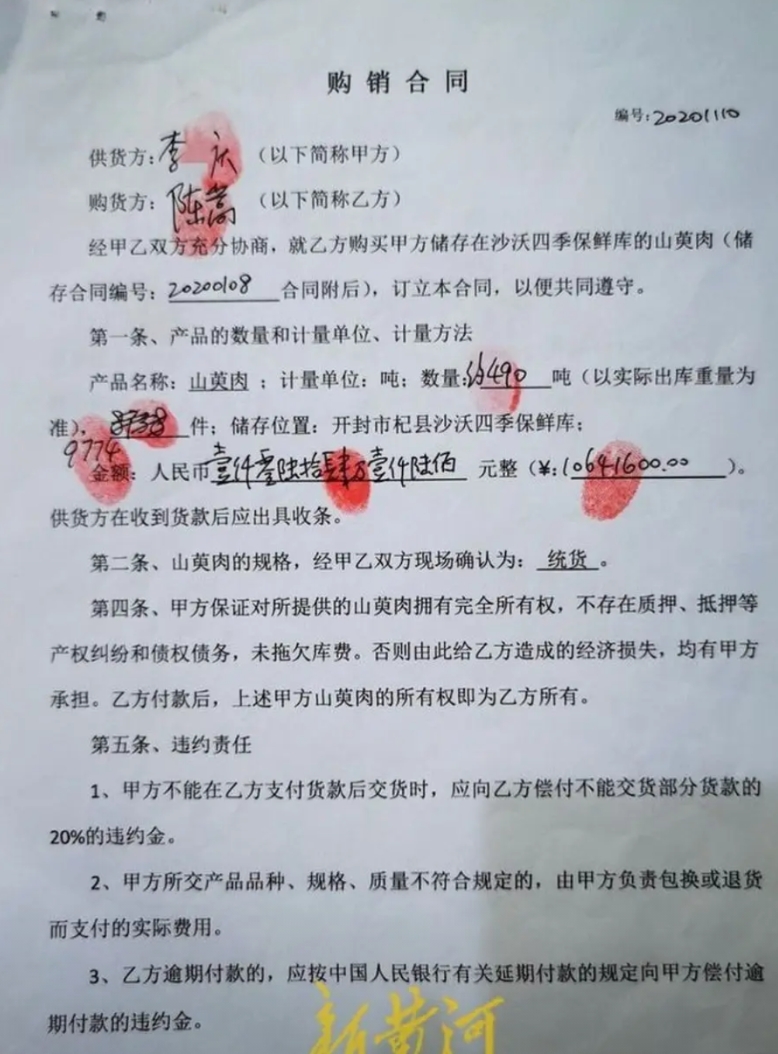 购销合同
编号:20201110
供货方:李庆（以下简称甲方）
购货方:陈嵩（以下简称乙方）
经甲乙双方充分协商，就乙方购买甲方储存在沙沃四季保鲜库的山萸肉（储
存合同编号：20200108合同附后），订立本合同，以便共同遵守。
第一条、产品的数量和计量单位、计量方法
产品名称：山萸肉；计量单位：吨；数量:490吨（以实际出库重量为
准），件；储存位置：开封市杞县沙沃四季保鲜库；
9774
金额：人民币壹仟零陆拾肆万壹仟陆佰元整（¥:10641600.00）。
供货方在收到货款后应出具收条。
第二条、山萸肉的规格，经甲乙双方现场确认为：统货。
第四条、甲方保证对所提供的山萸肉拥有完全所有权，不存在质押、抵押等
产权纠纷和债权债务，未拖欠库费。否则由此给乙方造成的经济损失，均有甲方
承担。乙方付款后，上述甲方山萸肉的所有权即为乙方所有。
第五条、违约责任
1、甲方不能在乙方支付货款后交货时，应向乙方偿付不能交货部分货款的
20%的违约金。
2、甲方所交产品品种、规格、质量不符合规定的，由甲方负责包换或退货
而支付的实际费用。
3、乙方逾期付款的，应按中国人民银行有关延期付款的规定向甲方偿付逾
期付款的违约金。
新黄河